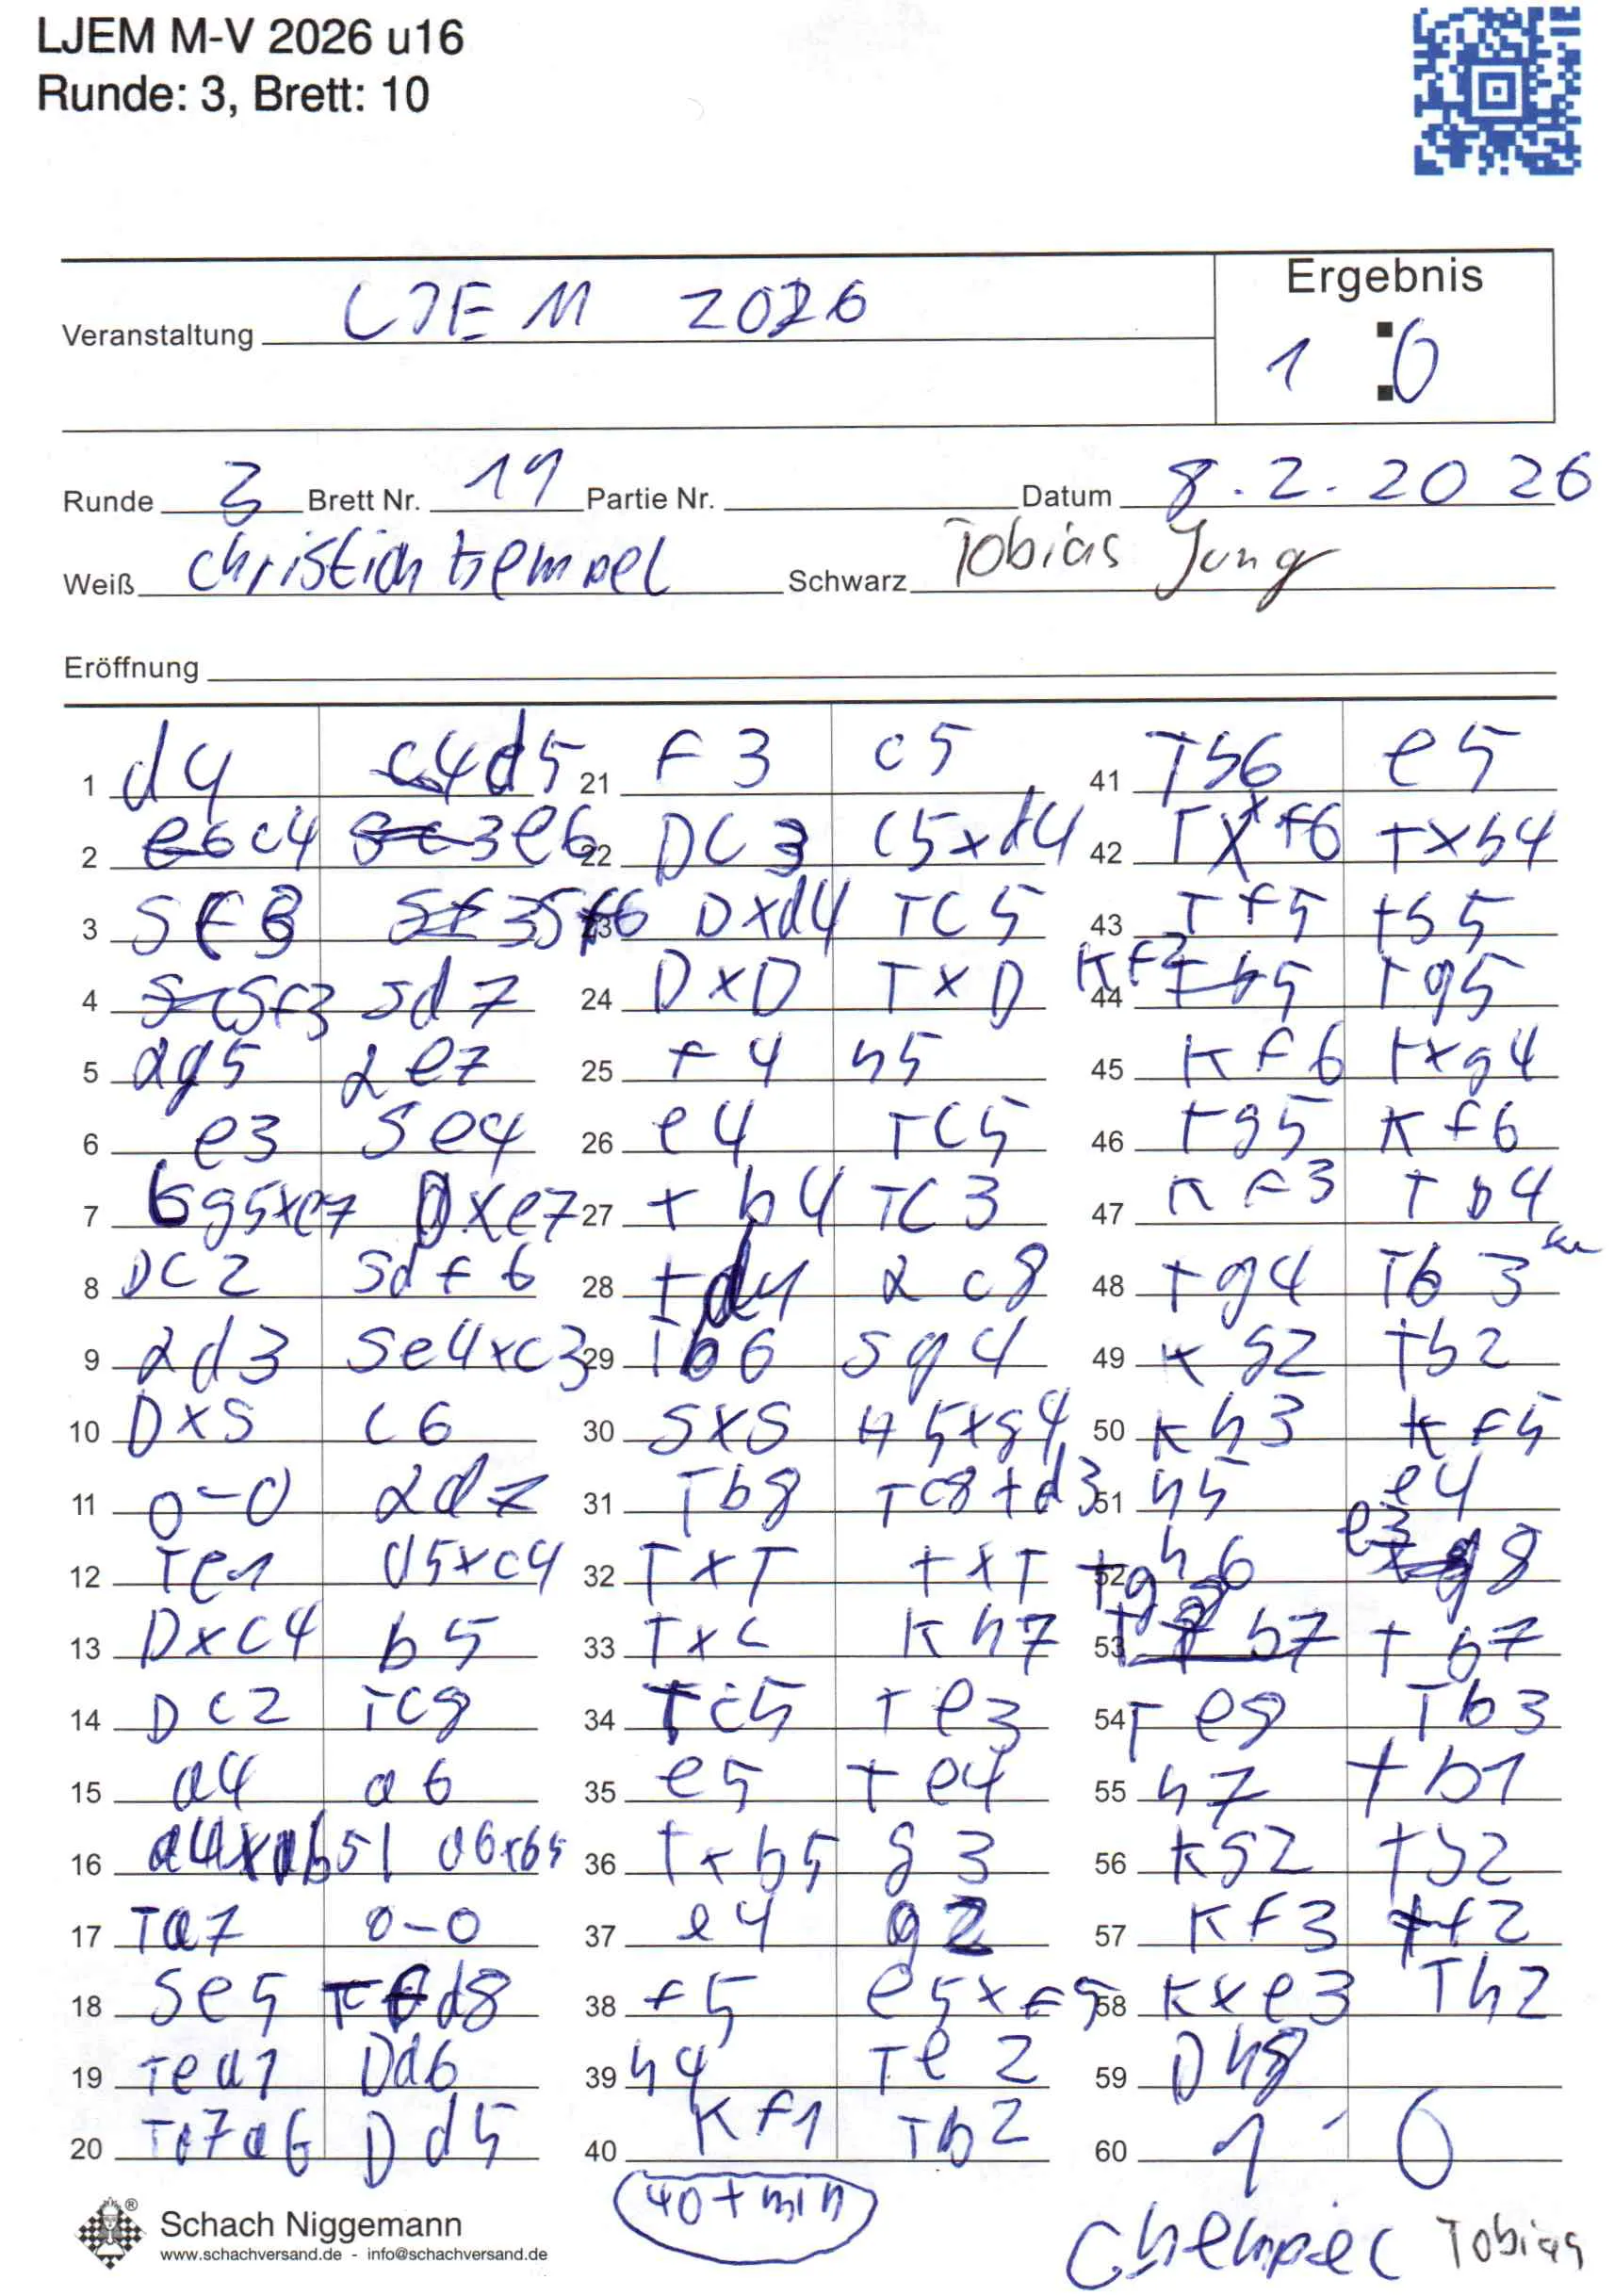 LJEM M-V 2026 u16
Runde: 3, Brett: 10
Veranstaltung LJEM 2026
Ergebnis
1 : 0
Runde 3 Brett Nr. 19 Partie Nr. Datum 8.2.2026
Weiß Christian Schwarz Tobias Jung
Eröffnung
1 d4 d5
2 c4 e6
3 Sc3 Sf6
4 Sf3 Sd7
5 Lg5 Le7
6 e3 Se4
7 Lg5xe7 Dxe7
8 DC2 Sdf6
9 Ld3 Se4xc3
10 DxS c6
11 0-0 Ld7
12 Te1 d5xc4
13 Dxc4 b5
14 DC2 TC8
15 a4 a6
16 a4xb5 a6xb5
17 Ta7 0-0
18 Se5 Tfd8
19 Tea1 Dd6
20 Ta7a6 Dd5
21 f3 c5
22 DC3 c5xd4
23 Dxd4 TC5
24 DxD TxD
25 f4 h5
26 e4 TC5
27 b4 TC3
28 Td1 Lc8
29 Tb6 Sg4
30 SxS H5xg4
31 Tb8 Td3
32 TxT TxT
33 TxL Kh7
34 Tc5 Te3
35 e5 Te4
36 Txb5 g3
37 e4 g2
38 f5 e5xf5
39 h4 Te2
40 Kf1 Tb2
41 Tb6 e5
42 Txf6 Txb4
43 Tf5 Tb5
44 Kf2 Tg5
45 Kf6 Txg4
46 Tg5 Kf6
47 Kf3 Tb4
48 Tg4 Tb3
49 Kg2 Tb2
50 Kh3 Kf5
51 h5 e4
52 h6 e3
53 Tb7
54 Te8 Tb3
55 h7 Tb1
56 Kg2 Tb2
57 Kf3 Tf2
58 Kxe3 Th2
59 Dh8
60 1 0
40 + min
Schach Niggemann
www.schachversand.de - info@schachversand.de
Tobias